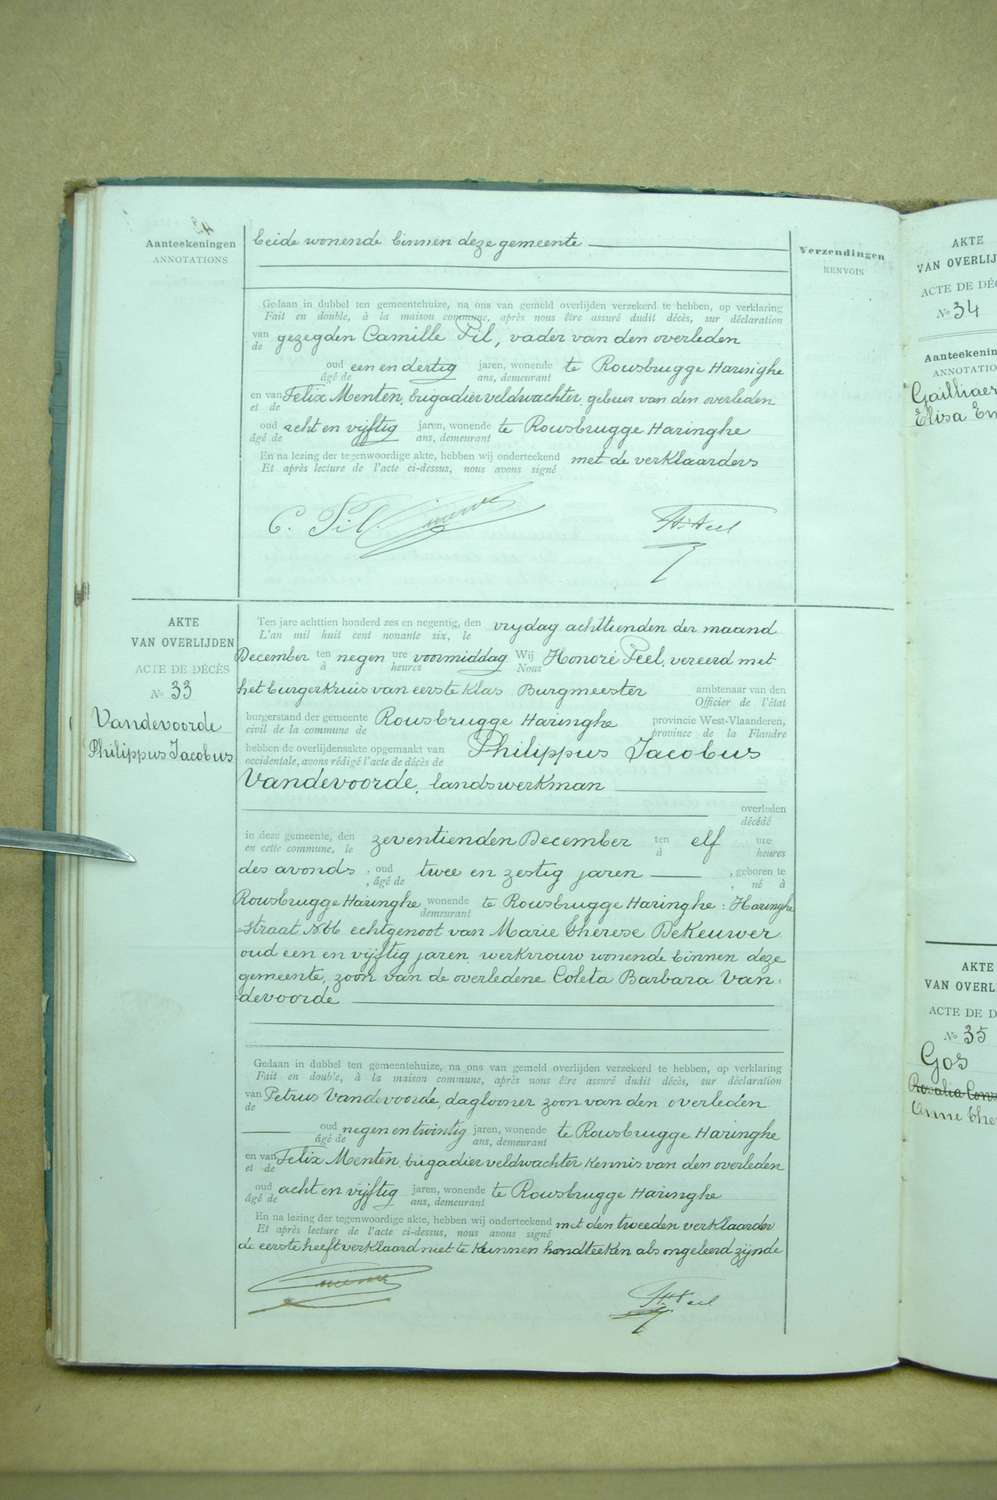 Aanteekeningen
ANNOTATIONS
beide wonende binnen deze gemeente
Verzendingen
RENVOIS
Gedaan in dubbel ten gemeentehuize, na ons van gemeld overlijden verzekerd te hebben, op verklaring
Fait en double, à la maison commune, après nous être assuré dudit décès, sur déclaration
van gezegden Camille Pil, vader van den overleden
de
oud een en dertig jaren, wonende te Rousbrugge Haringhe
âgé de ans, demeurant
en van Felix Menten, brigadier veldwachter, gebuer van den overleden
et de
oud acht en vijftig jaren, wonende te Rousbrugge Haringhe
âgé de ans, demeurant
En na lezing der tegenwoordige akte, hebben wij onderteekend met de verklaarders
Et après lecture de l'acte ci-dessus, nous avons signé
C. Pil
AKTE
VAN OVERLIJDEN
ACTE DE DÉCÈS
No 33
Vandevoorde
Philippus Jacobus
Ten jare achttien honderd zes en negentig, den vrydag achttienden der maand
L'an mil huit cent nonante six, le
December ten negen ure voormiddag Wij Honoré Feel, vereerd met
à heures Nous
het burgerkruis van eerste klas Burgmeester ambtenaar van den
Officier de l'état
burgerstand der gemeente Rousbrugge Haringhe provincie West-Vlaanderen,
civil de la commune de province de la Flandre
hebben de overlijdensakte opgemaakt van Philippus Jacobus
occidentale, avons rédigé l'acte de décès de
Vandevoorde, landswerkman
overleden
décédé
in deze gemeente, den zeventienden December ten elf ure
en cette commune, le à heures
des avonds, oud twee en zestig jaren, geboren te
, âgé de , né à
Rousbrugge Haringhe wonende te Rousbrugge Haringhe: Haringhe
demeurant
straat No 66 echtgenoot van Marie Therese DeKeuwer
oud een en vijftig jaren, werkvrouw wonende binnen deze
gemeente, zoon van de overledene Coleta Barbara Van
devoorde
Gedaan in dubbel ten gemeentehuize, na ons van gemeld overlijden verzekerd te hebben, op verklaring
Fait en double, à la maison commune, après nous être assuré dudit décès, sur déclaration
van Petrus Vandevoorde, daglooner zoon van den overleden
de
oud negen en twintig jaren, wonende te Rousbrugge Haringhe
âgé de ans, demeurant
en van Felix Menten, brigadier veldwachter kennis van den overleden
et de
oud acht en vijftig jaren, wonende te Rousbrugge Haringhe
âgé de ans, demeurant
En na lezing der tegenwoordige akte, hebben wij onderteekend met den tweeden verklaarder
Et après lecture de l'acte ci-dessus, nous avons signé
de eerste heeft verklaard niet te kunnen handteeken als ongeleerd zijnde
AKTE
VAN OVERLIJ
ACTE DE DÉC
No 34
Aanteekenin
ANNOTATIO
Gailliaer
Elisa Em
AKTE
VAN OVERL
ACTE DE D
No 35
Gos
Rosalia Cons
Anne The